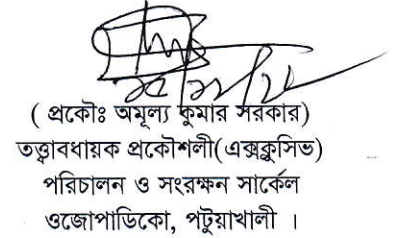 ( প্রকৌঃ অমূল্য কুমার সরকার)
তত্ত্বাবধায়ক প্রকৌশলী(এক্সক্লুসিভ)
পরিচালন ও সংরক্ষন সার্কেল
ওজোপাডিকো, পটুয়াখালী ।